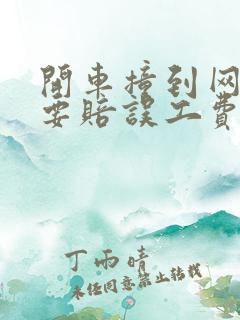 開車撞到网
要賠誤工費
丁雨晴
未经同意禁止转载